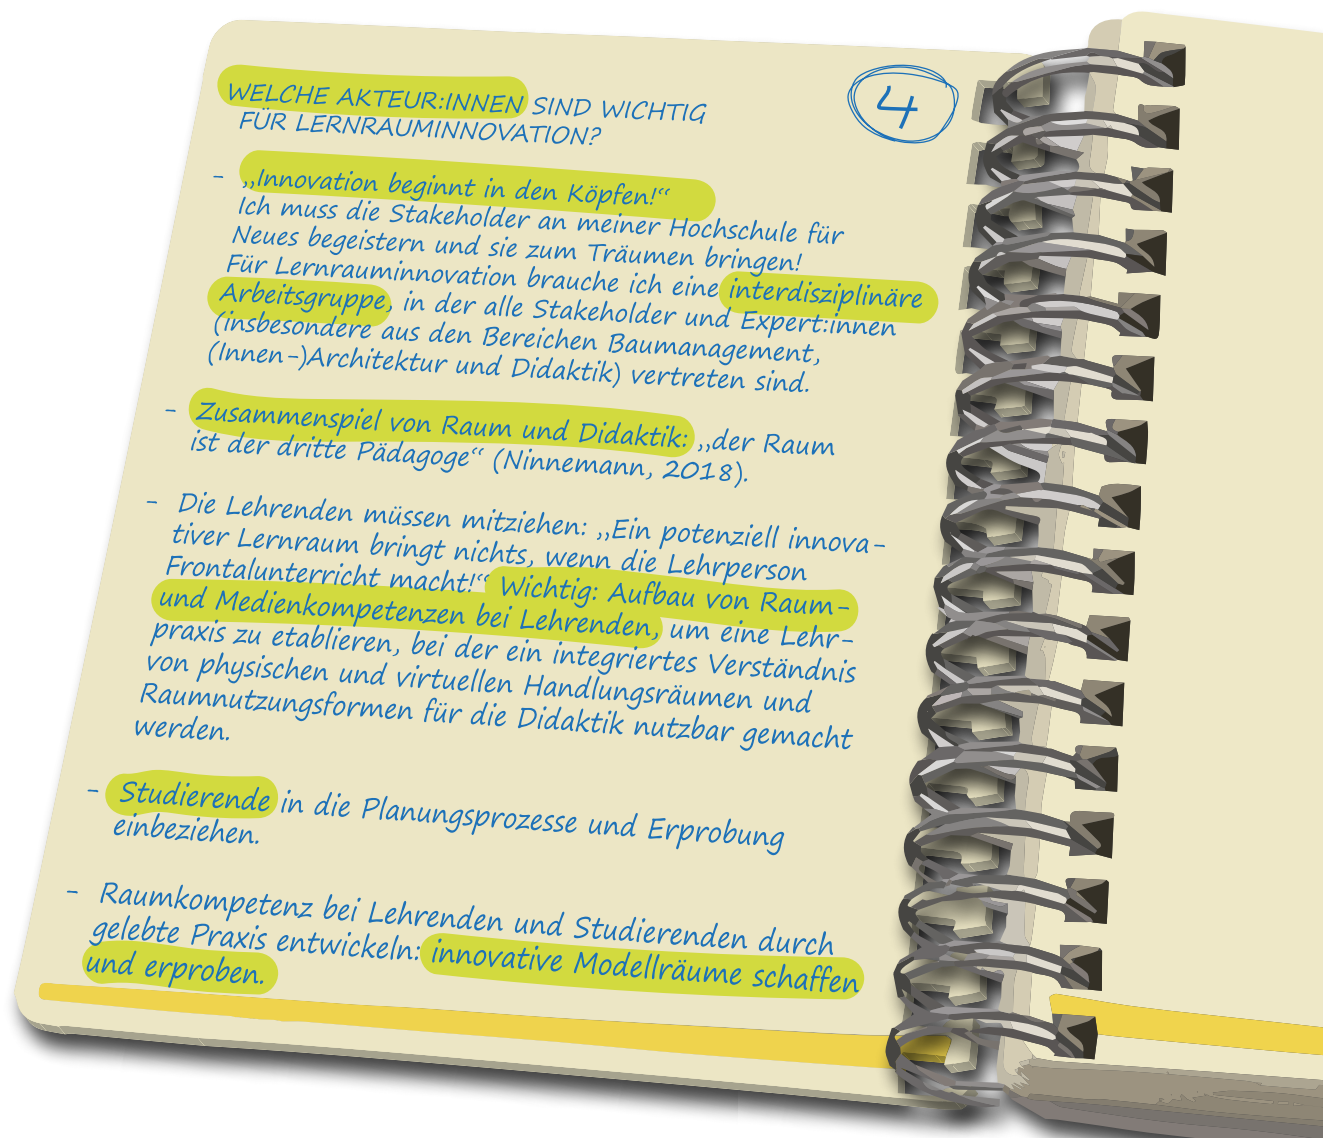 WELCHE AKTEUR:INNEN SIND WICHTIG
FÜR LERNRAUMINNOVATION?
4
- „Innovation beginnt in den Köpfen!“
Ich muss die Stakeholder an meiner Hochschule für
Neues begeistern und sie zum Träumen bringen!
Für Lernrauminnovation brauche ich eine interdisziplinäre
Arbeitsgruppe, in der alle Stakeholder und Expert:innen
(insbesondere aus den Bereichen Baumanagement,
(Innen-)Architektur und Didaktik) vertreten sind.
- Zusammenspiel von Raum und Didaktik: „der Raum
ist der dritte Pädagoge“ (Ninnemann, 2018).
- Die Lehrenden müssen mitziehen: „Ein potenziell innova-
tiver Lernraum bringt nichts, wenn die Lehrperson
Frontalunterricht macht!“ Wichtig: Aufbau von Raum-
und Medienkompetenzen bei Lehrenden, um eine Lehr-
praxis zu etablieren, bei der ein integriertes Verständnis
von physischen und virtuellen Handlungsräumen und
Raumnutzungsformen für die Didaktik nutzbar gemacht
werden.
- Studierende in die Planungsprozesse und Erprobung
einbeziehen.
- Raumkompetenz bei Lehrenden und Studierenden durch
gelebte Praxis entwickeln: innovative Modellräume schaffen
und erproben.